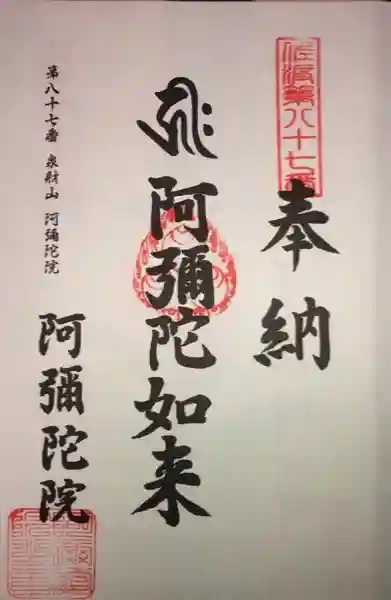 佐渡第八十七番
奉納
阿彌陀如来
第八十七番 泉財山 阿彌陀院
阿彌陀院